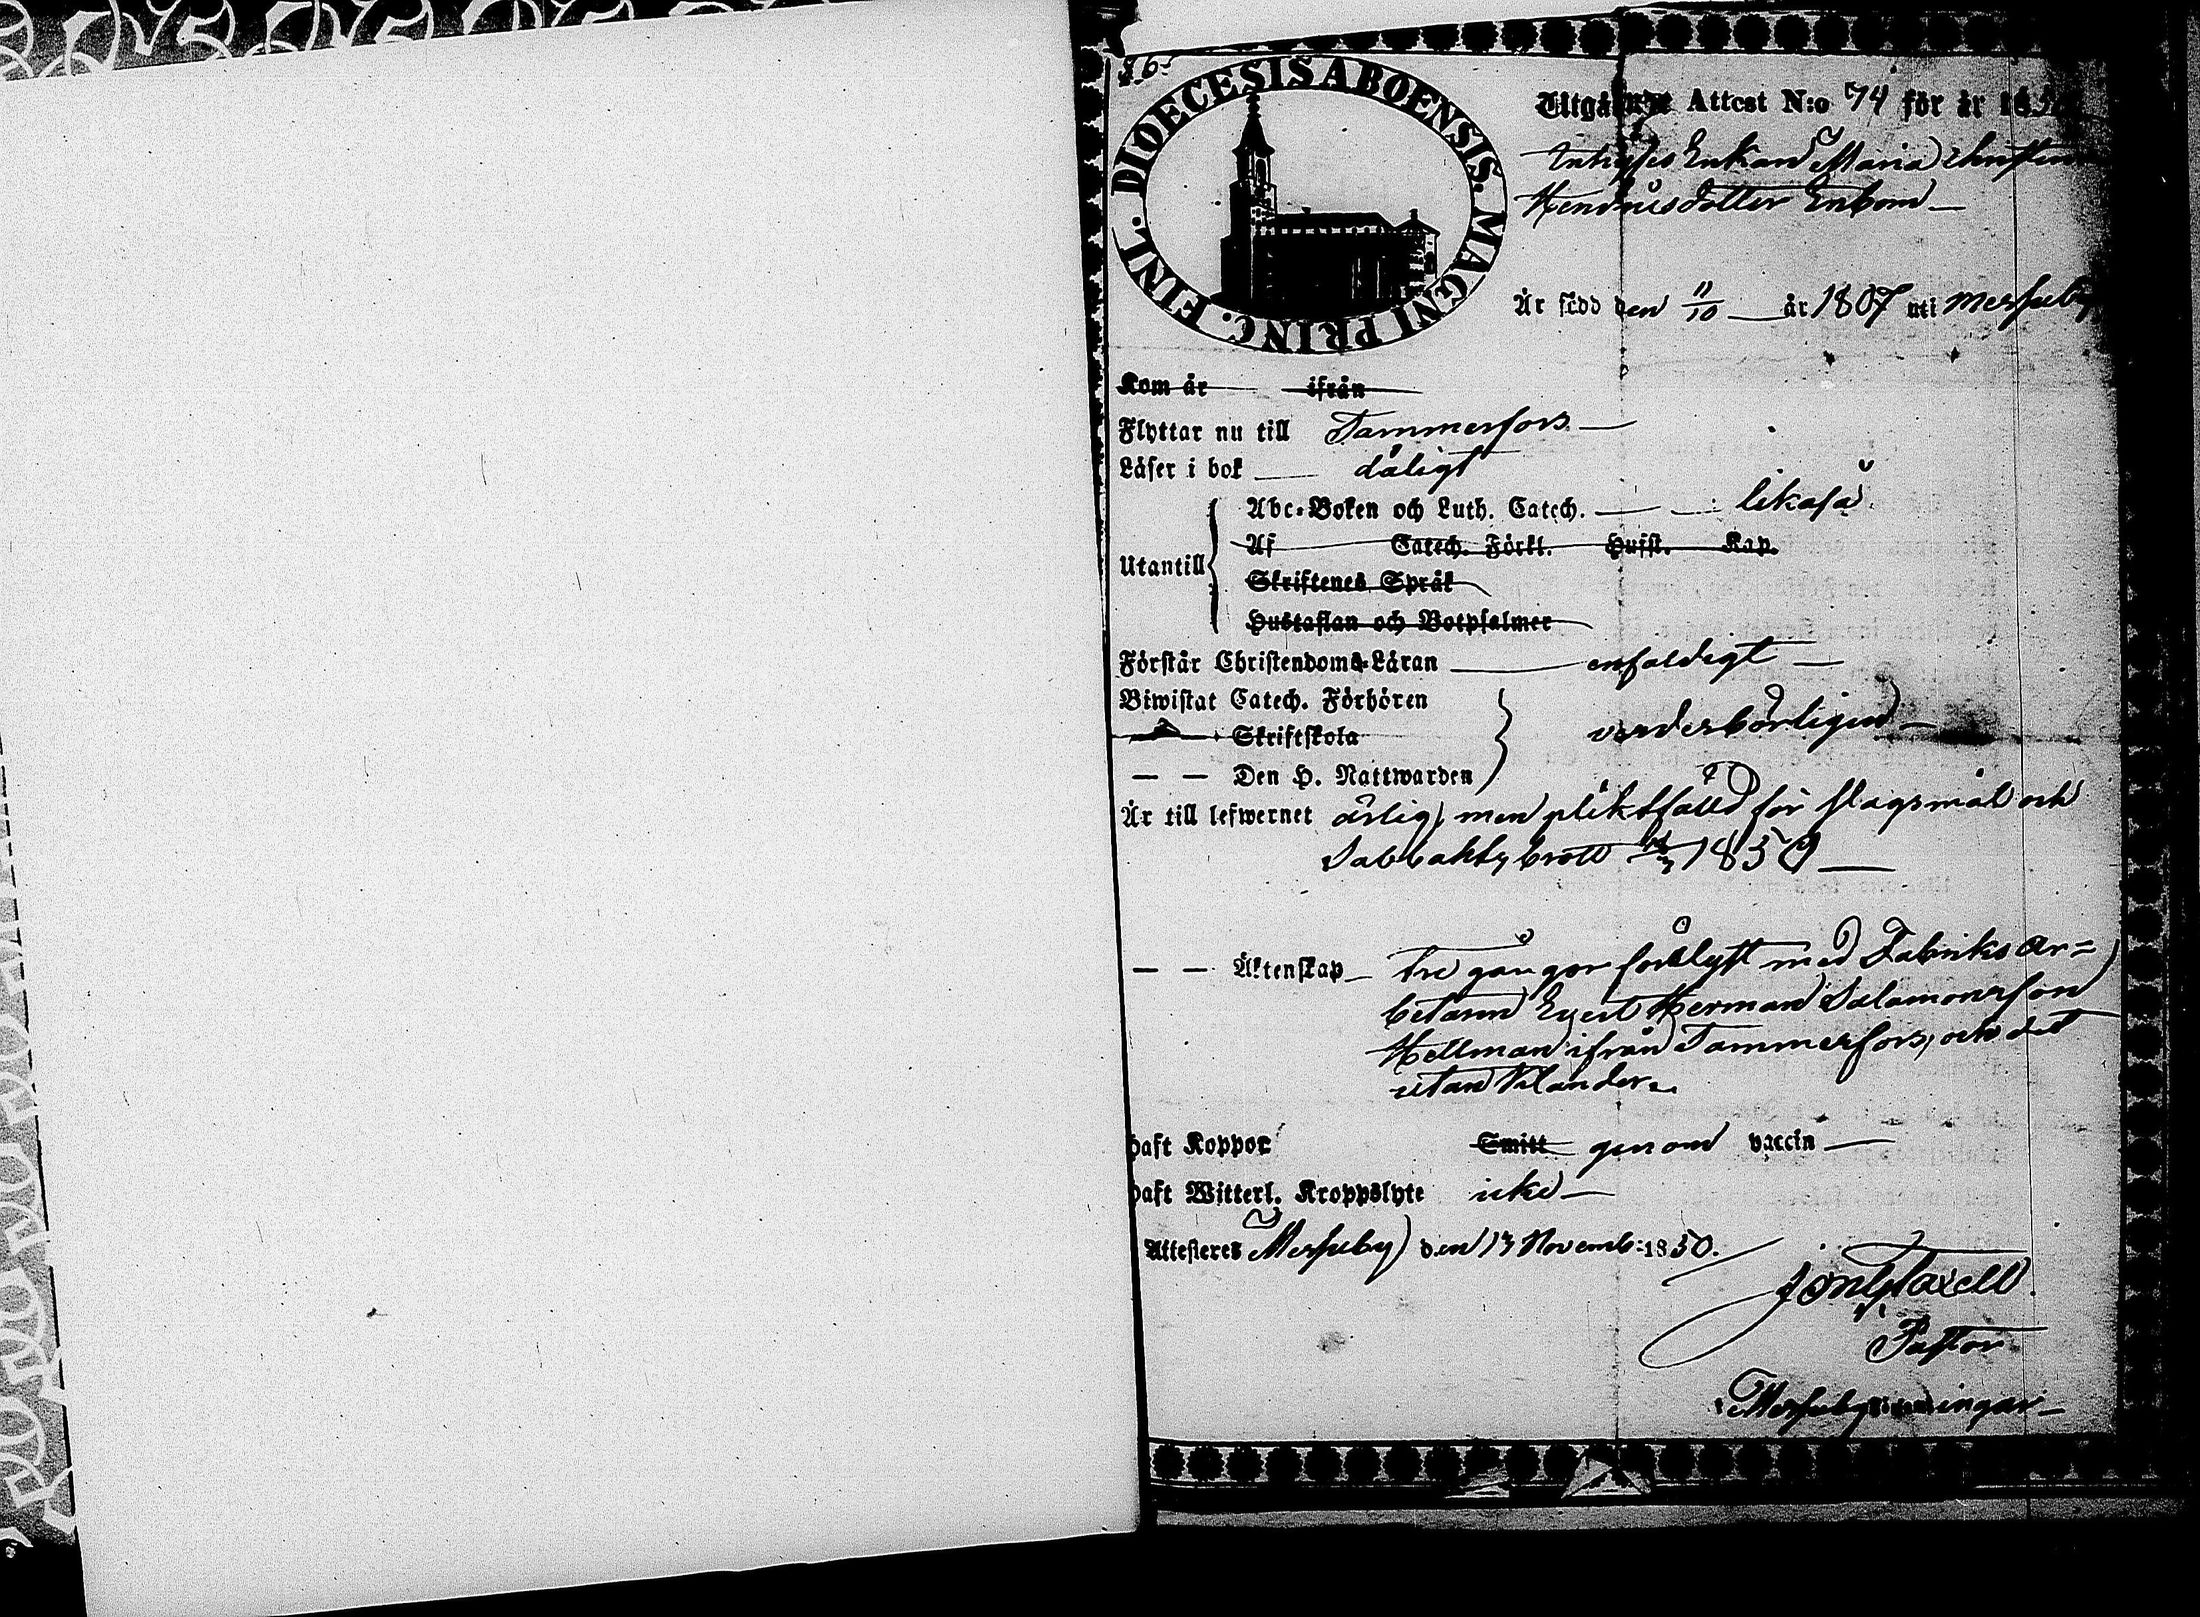 86.
DIOECESIS ABOENSIS. MAGNI PRINC. FINL.
Utgående Attest N:o 74 för år 185
Enkan Maria Christin
Hendricsdotter Enbom —
Är född den 11/10 — år 1807 uti Messuby
Kom år — ifrån
Flyttar nu till Tammerfors —
Läser i bok — dåligt
Utantill
Abc-Boken och Luth. Catech. — — likaså
Af Catech. Förkl. Hufst. Kap.
Skriftenes Språk
Hustaflan och Botpsalmer
Förstår Christendoms-Läran — enfaldigt —
Biwistat Catech. Förhören
— — Skriftskola vederbörligen —
— — Den H. Nattwarden
Är till lefwernet ärlig, men pliktfälld för slagsmål och
Sabbathsbrott 1850 —
— — Äktenskap — tre gångor förelyst med Fabriks Ar=
betaren Evert Herman Salamonsson
Hellman ifrån Tammerfors, och det
utan klander.
haft Koppor Smitt genom vaccin —
haft Witterl. Kroppslyte icke —
Attesteres Messuby den 13 Novemb: 1850.
Taxell
Pastor
Messuby